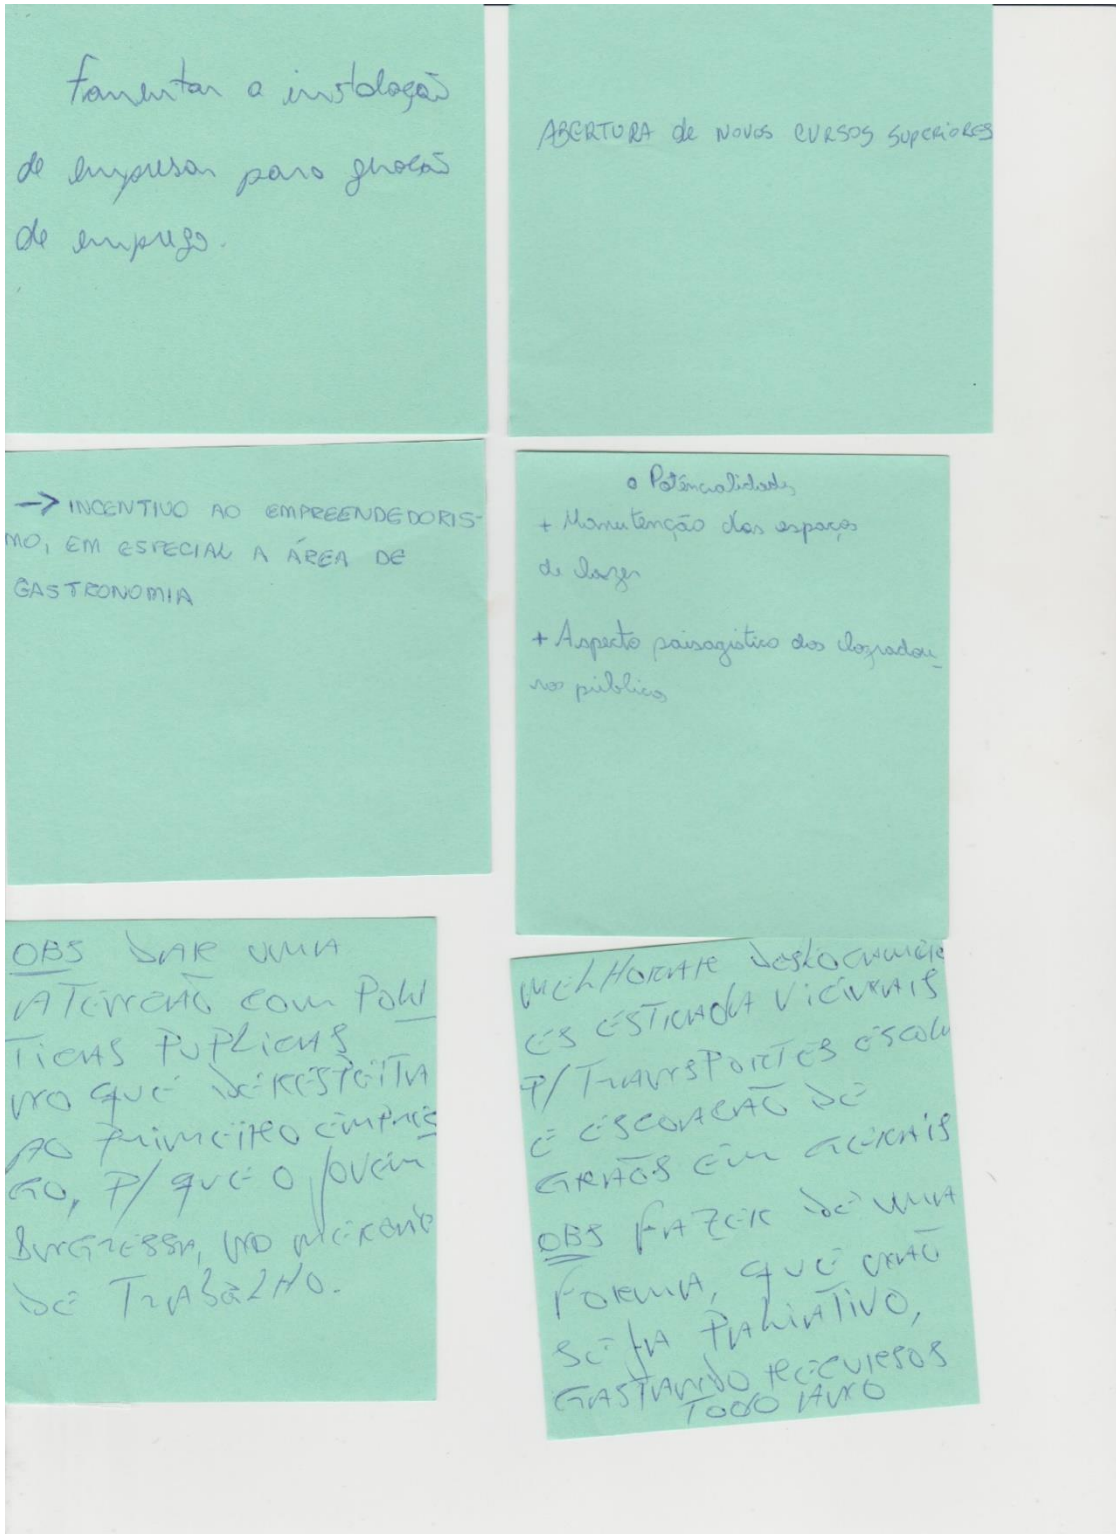 Fomentar a instalação
de empresas para geração
de emprego.
ABERTURA de NOVOS CURSOS SUPERIORES
→ INCENTIVO AO EMPREENDEDORIS-
MO, EM ESPECIAL A ÁREA DE
GASTRONOMIA
o Potêncialidades
+ Manutenção dos espaços
de lazer
+ Aspecto paisagístico dos logradou-
ros públicos
OBS DAR UMA
ATENÇÃO COM POLI
TICAS PUPLICAS
NO QUE DE RESPEITA
AO PRIMEIRO EMPRE
GO, P/ QUE O JOVEM
NO MERCADO
DE TRABALHO.
MELHORAR
ESTRADA VICINAIS
P/ TRANSPORTES ESCOLA
E ESCOAÇÃO DE
GRÃOS EM GERAIS
OBS FAZER DE UMA
FORMA, QUE NÃO
SEJA PALIATIVO,
GASTANDO RECURSOS
TODO ANO